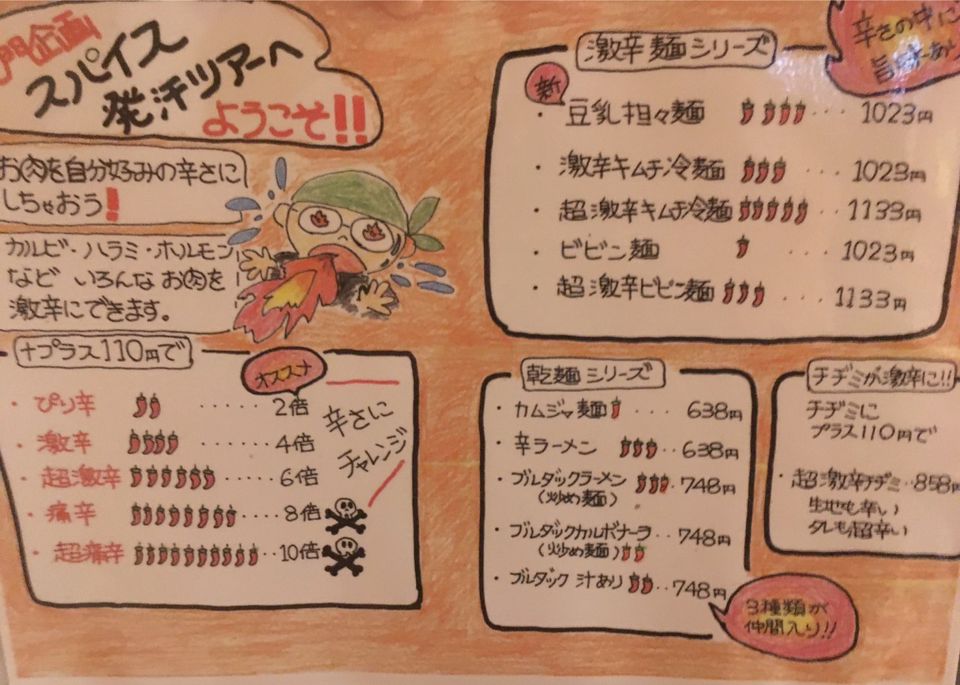 門企画
スパイス
発汗ツアーへ
ようこそ!!
お肉を自分好みの辛さに
しちゃおう!
カルビ・ハラミ・ホルモン
など いろんな お肉を
激辛にできます。
+プラス110円で
オススメ
・ぴり辛 ‥‥‥ 2倍
・激辛 ‥‥‥ 4倍
・超激辛 ‥ 6倍
・痛辛 ‥ 8倍
・超痛辛 ‥ 10倍
辛さに
チャレンジ
辛さの中に
旨味あり
激辛麺シリーズ
新
・豆乳担々麺 ‥‥ 1023円
・激辛キムチ冷麺 ‥‥ 1023円
・超激辛キムチ冷麺 ‥ 1133円
・ビビン麺 ‥‥ 1023円
・超激辛ビビン麺 ‥‥ 1133円
乾麺シリーズ
・カムジャ麺 ‥‥ 638円
・辛ラーメン ‥ 638円
・ブルダックラーメン ‥ 748円
(炒め麺)
・ブルダックカルボナーラ ‥ 748円
(炒め麺)
・ブルダック 汁あり ‥ 748円
3種類が
仲間入り!!
チヂミが激辛に!!
チヂミに
プラス110円で
・超激辛チヂミ ‥ 858円
生地も辛い
タレも超辛い